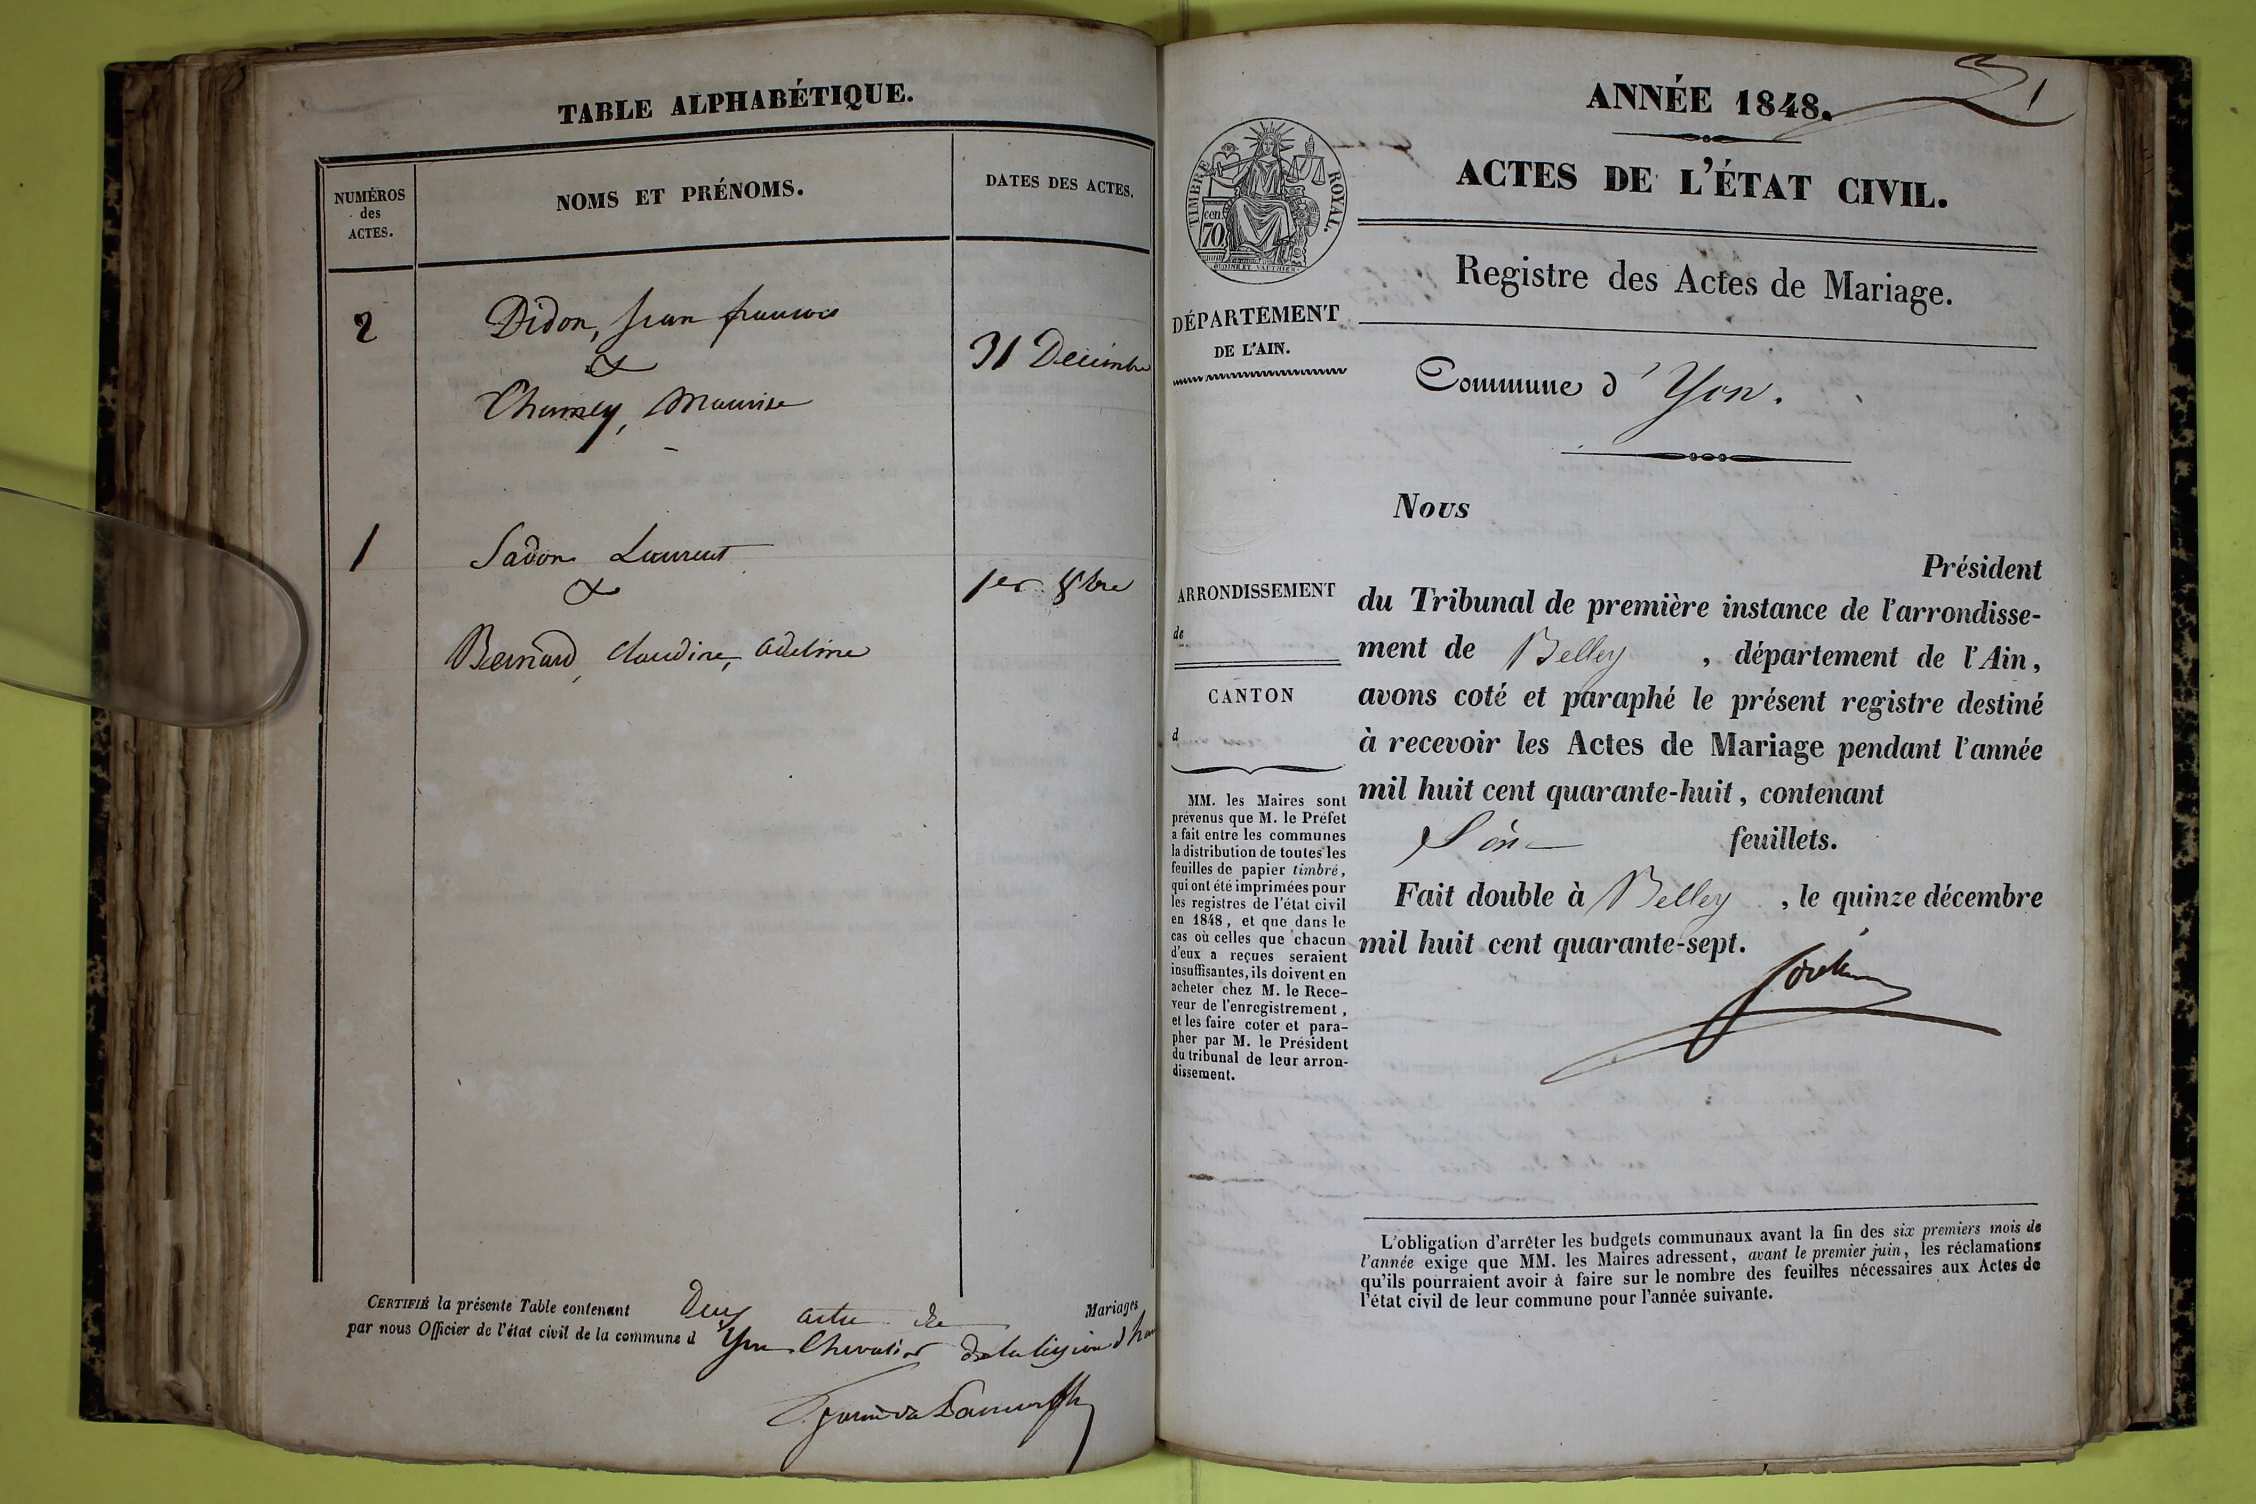 TABLE ALPHABÉTIQUE.
NUMÉROS
des
ACTES.
NOMS ET PRÉNOMS.
DATES DES ACTES.
2
Didon, Jean francois
&
31 Decembre
1
Sadon Laurent
&
1er 8bre
Bernard, Claudine, adeline
CERTIFIÉ la présente Table contenant Deux acte de Mariages
par nous Officier de l'état civil de la commune d Yon Chevalier de la légion d'hon
ANNÉE 1848.
1
ACTES DE L'ÉTAT CIVIL.
Registre des Actes de Mariage.
TIMBRE ROYAL.
cen.
70
DÉPARTEMENT
DE L'AIN.
Commune d'Yon.
ARRONDISSEMENT
de
CANTON
d
MM. les Maires sont
prévenus que M. le Préfet
a fait entre les communes
la distribution de toutes les
feuilles de papier timbré,
qui ont été imprimées pour
les registres de l'état civil
en 1848, et que dans le
cas où celles que chacun
d'eux a reçues seraient
insuffisantes, ils doivent en
acheter chez M. le Rece-
veur de l'enregistrement,
et les faire coter et para-
pher par M. le Président
du tribunal de leur arron-
dissement.
Nous
Président
du Tribunal de première instance de l'arrondisse-
ment de Belley, département de l'Ain,
avons coté et paraphé le présent registre destiné
à recevoir les Actes de Mariage pendant l'année
mil huit cent quarante-huit, contenant
feuillets.
Fait double à Belley, le quinze décembre
mil huit cent quarante-sept.
L'obligation d'arrêter les budgets communaux avant la fin des six premiers mois de
l'année exige que MM. les Maires adressent, avant le premier juin, les réclamations
qu'ils pourraient avoir à faire sur le nombre des feuilles nécessaires aux Actes de
l'état civil de leur commune pour l'année suivante.